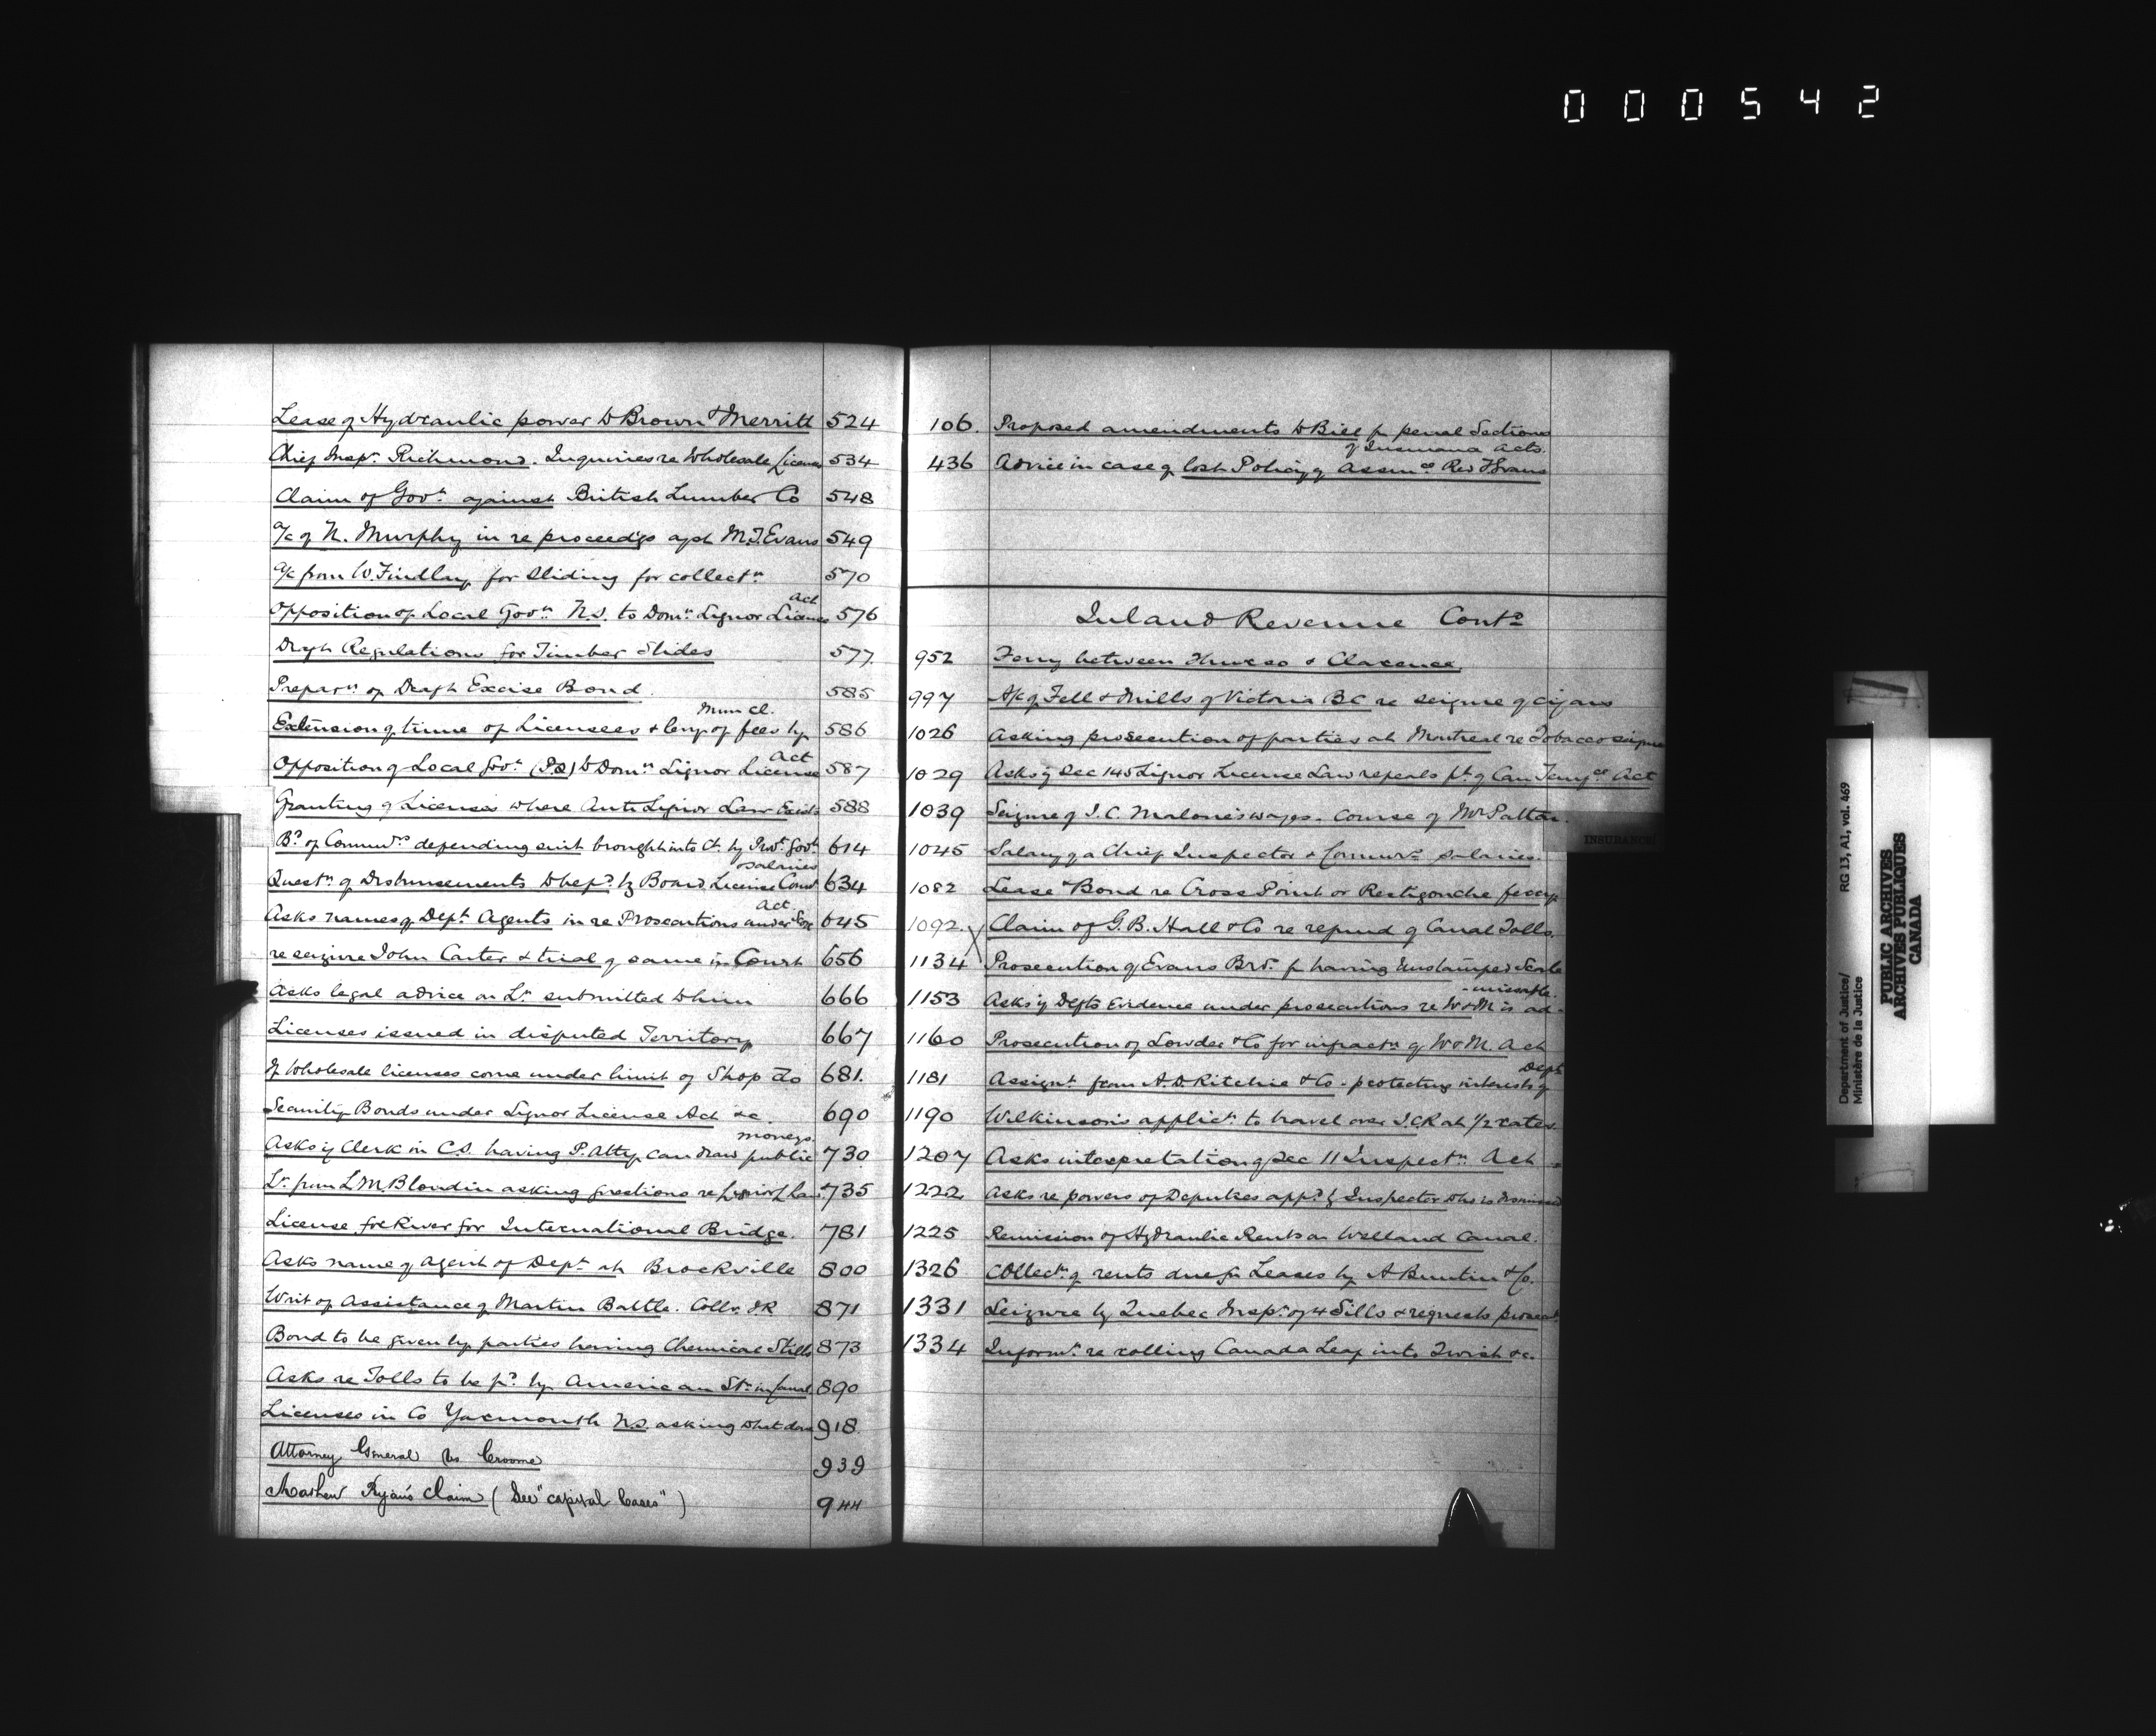 000542
Lease of Hydraulic power to Brown & Merritt 524
Chief Inspr. Richmond. Inquiries re Wholesale License 534
Claim of Govt. against British Lumber Co 548
A/c of N. Murphy in re proceedgs agst M.J. Evans 549
A/c from W. Findlay for sliding for collectn 570
Act
Opposition of Local Govt. N.S. to Domn. Liquor License 576
Draft Regulations for Timber Slides 577
Preparn of Draft Excise Bond. 585
Mun Cl.
Extension of time of Licensees & levy of fees by 586
Act
Opposition of Local Govt. (P.Q.) to Domn Liquor License 587
Granting of Licenses where Anti Liquor Law Exists 588
Bd. of Commrs depending suit brought into Ct. by Govt. 614
& salaries
Questn of Disbursements to be pd. by Board License Comrs 634
Act.
Asks names of Dept Agents in re Prosecutions under 645
re seizure John Carter & trial of same in Court 656
Asks legal advice on Lr. submitted to him 666
Licenses issued in disputed Territory 667
If Wholesale licenses come under limit of Shop do 681.
Security Bonds under Liquor License Act &c 690
moneys.
Asks if Clerk in C.S. having P. Atty. can draw public 730
Lr. from L.M. Blondin asking questions re 735
License for River for International Bridge. 781
Asks name of agent of Dept. at Brockville 800
Writ of Assistance of Martin Battle. Collr. I.R 871
Bond to be given by parties having Chemical Stills 873
Asks re Tolls to be pd. by American Sr. in Canal 890
Licenses in Co Yarmouth N.S. asking what 918.
Attorney General vs Croome 939
Mathew Ryan's Claim (See "Capital Cases") 944
106. Proposed amendments to Bill for penal Sections
of Insurance Acts.
436 Advice in case of lost Policy of Assnce Rev Evans
INSURANCE
Inland Revenue Contd
952 Ferry between Thurso & Clarence
997 A/c of Fell & Mills of Victoria BC re seizure of cigars
1026 Asking prosecution of parties at Montreal re Tobacco seizure
1029 Asks if Sec 145 Liquor License Law repeals pt. of Can Tempce Act
1039 Seizure of J.C. Malone's wages. Course of Mr Patton.
1045 Salary of a Chief Inspector & Commrs salaries.
1082 Lease & Bond re Cross Point or Restigouche ferry
1092. Claim of G.B. Hall & Co re refund of Canal Tolls.
1134 Prosecution of Evans Bros. for having Unstamped Scale
-missable.
1153 Asks if Depts Evidence under prosecutions re W & M is ad-
1160 Prosecution of Lowden & Co for infractn of W & M. Act
Dept
1181 Assignt from A.D. Ritchie & Co. protecting interests of
1190 Wilkinson's applicn to travel over I.C.R at 1/2 rates
1207 Asks interpretation of Sec 11 Inspectn Act
1222 Asks re powers of Deputies appd. by Inspector who is dismissed
1225 Remission of Hydraulic Rents on Welland Canal.
1326 Collectn of rents due for Leases by A Buntin & Co.
1331 Seizure by Quebec Inspr. of 4 Sills & requests
1334 Informn. re rolling Canada Leaf into Twist &c.
Department of Justice/
Ministère de la Justice
RG 13, A1, vol. 469
PUBLIC ARCHIVES
ARCHIVES PUBLIQUES
CANADA